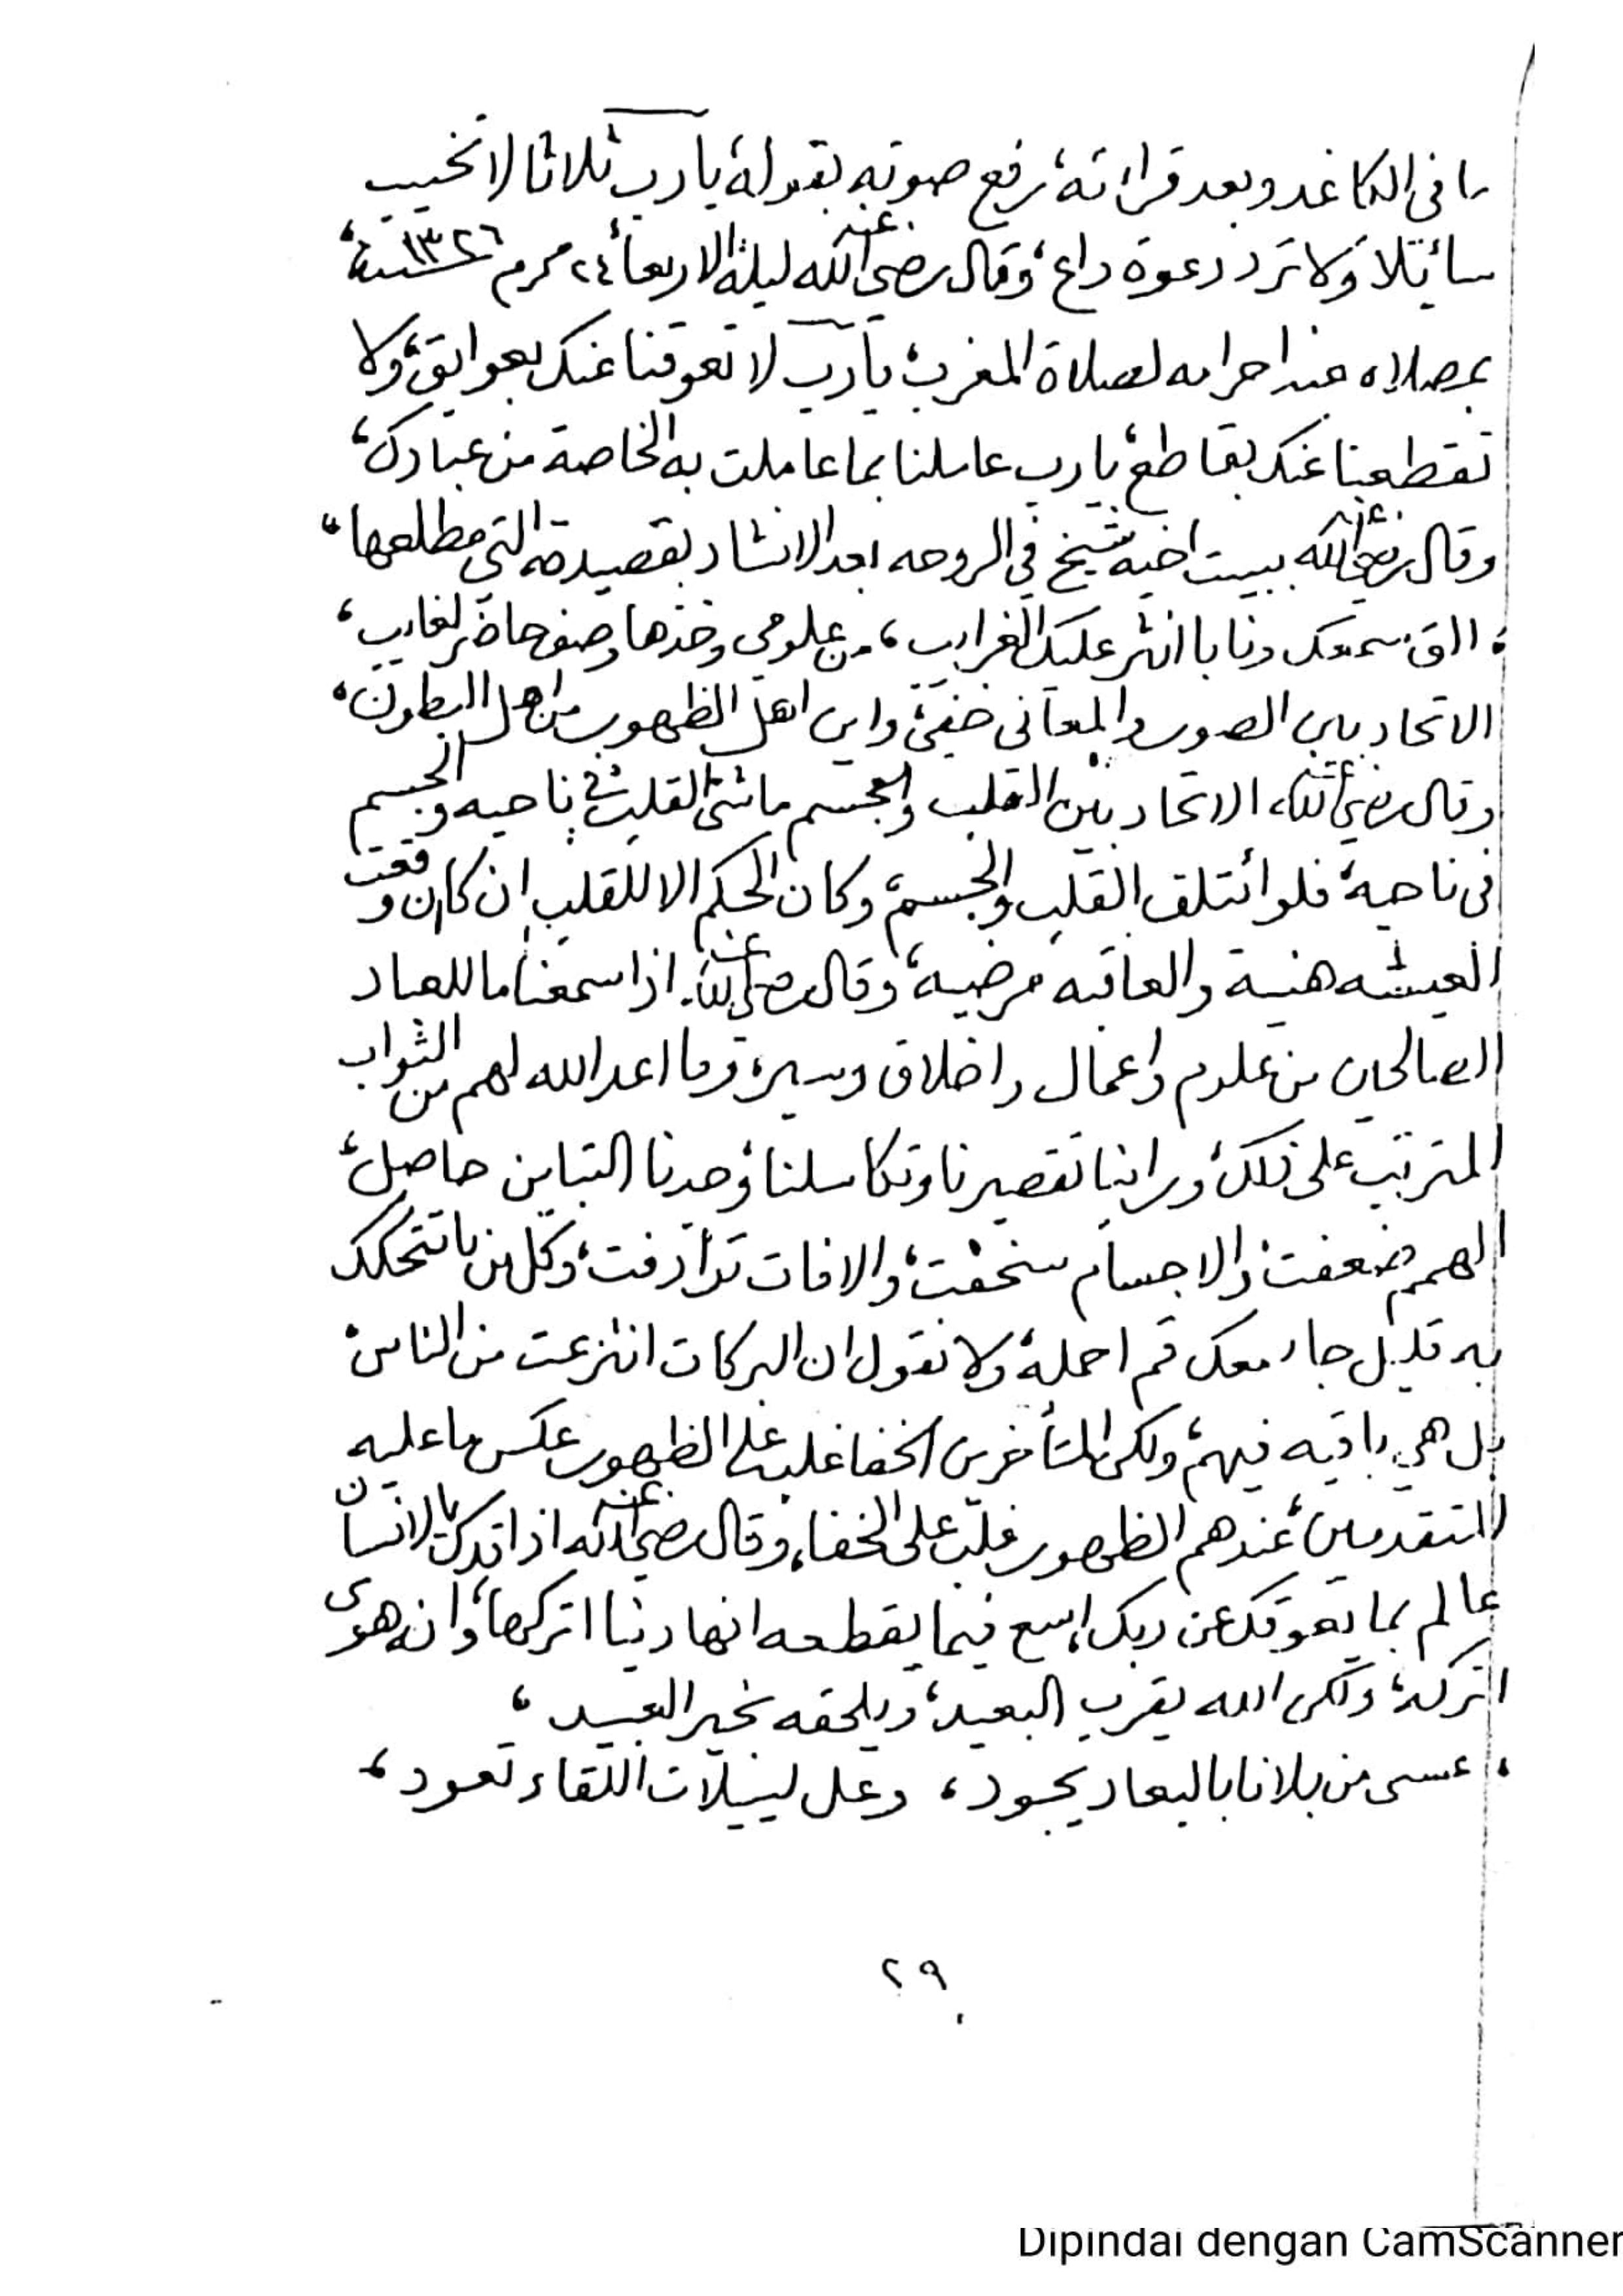 ما في الكاغد وبعد قرائته، رفع صوته بقوله، يا رب ثلاثا لا تخيب
سائلا، ولا ترد دعوة داع، وقال رضي الله عنه ليلة الاربعاء ٢٤ محرم سنة ١٣٢٦،
بمصلاه عند احرامه لصلاة المغرب، يا رب لا تعوقنا عنك بعوايق، ولا
تقطعنا عنك بقاطع، يا رب عاملنا بما عاملت به الخاصة من عبادك،
وقال رضي الله عنه ببيت اخيه شيخ في الروحه بعد الانشاد بقصيدته التي مطلعها،
، الق سمعك ونا با انثر عليك الغرايب، من علومي وخذها وصفو حاضر لغايب،
الاتحاد بين الصور والمعاني خفي، واين اهل الظهور من اهل البطون،
وقال رضي الله عنه، الاتحاد بين القلب والجسم ما شي، القلب في ناحيه والجسم
في ناحيه، فلو ائتلف القلب والجسم، وكان الحكم الا للقلب ان كان وقعت
العيشه هنية والعاقبه مرضيه، وقال رضي الله عنه اذا سمعنا ما للعباد
الصالحين من علوم واعمال واخلاق وسيرة وما اعد الله لهم من الثواب
المترتب على ذلك، وراينا تقصيرنا وتكاسلنا، وجدنا التباين حاصل،
الهمم ضعفت، والاجسام سخفت، والافات ترادفت، وكل من باتتحكك
به قليل جا معك قم احمله، ولا نقول ان البركات انتزعت من الناس،
بل هي باقيه فيهم، ولكن المتأخرين الخفا غلب على الظهور عكس ما عليه
المتقدمين، عندهم الظهور غلب على الخفاء، وقال رضي الله عنه اذا تدرك يا لانسان
عالم بما يعوقك عن ربك اسع فيما يقطعه انها دنيا اتركها، وانه هوى
اتركه، ولكن الله يقرب البعيد، ويلحقه بخير العبيد،
، عسى من بلانا بالبعاد يجود، وعل لييلات اللقاء تعود،
٢٩
Dipindai dengan CamScanner